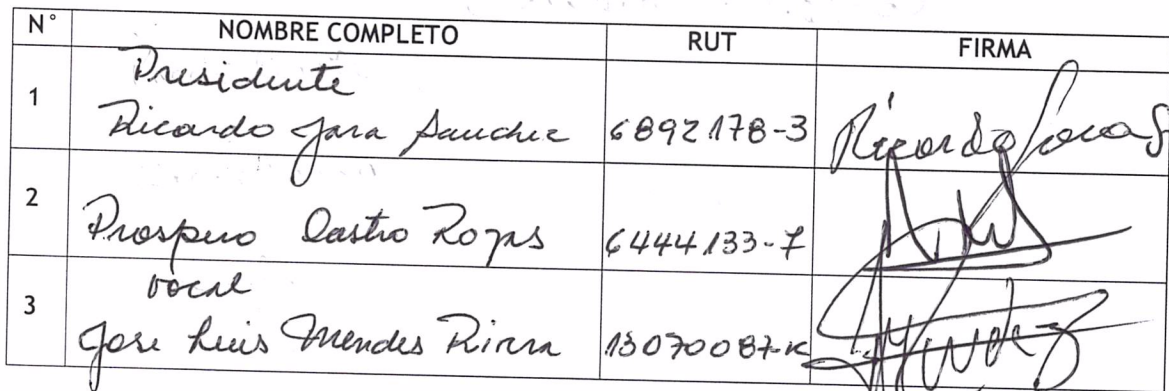 N° NOMBRE COMPLETO RUT FIRMA
Presidente
1 Ricardo Jara Sanchez 6892178-3 Ricardo Jara S
2 Prospero Castro Rojas 6444133-7
vocal
3 Jose Luis Mendes Rivera 13070087-K